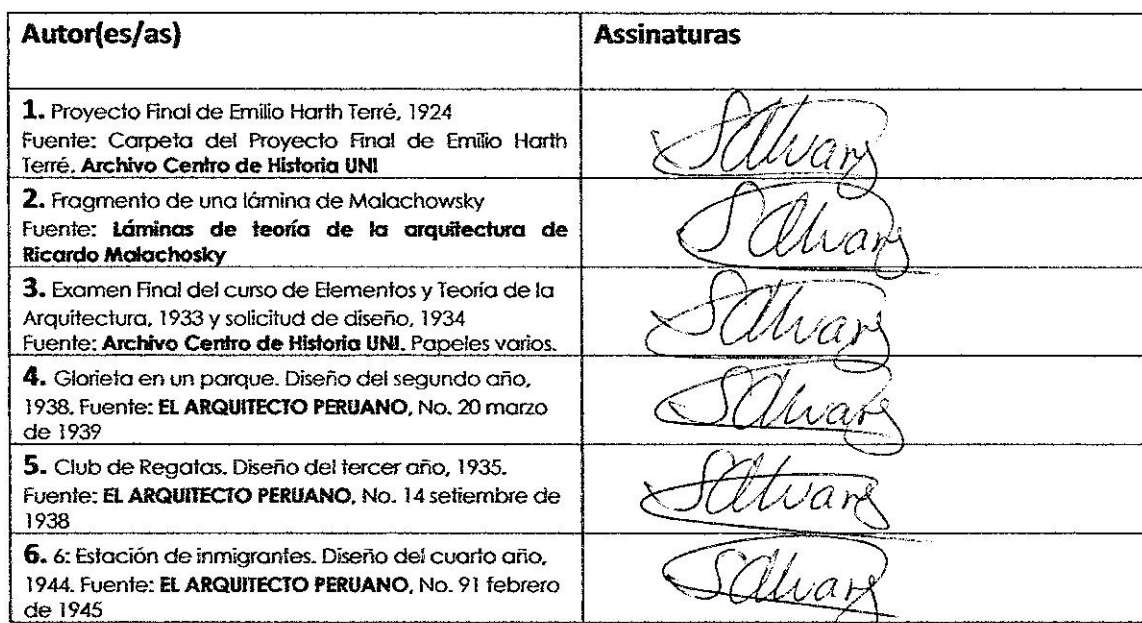 Autor(es/as)
Assinaturas
1. Proyecto Final de Emilio Harth Terré, 1924
Fuente: Carpeta del Proyecto Final de Emilio Harth
Terré. Archivo Centro de Historia UNI
2. Fragmento de una lámina de Malachowsky
Fuente: Láminas de teoría de la arquitectura de
Ricardo Malachosky
3. Examen Final del curso de Elementos y Teoría de la
Arquitectura, 1933 y solicitud de diseño, 1934
Fuente: Archivo Centro de Historia UNI. Papeles varios.
4. Glorieta en un parque. Diseño del segundo año,
1938. Fuente: EL ARQUITECTO PERUANO, No. 20 marzo
de 1939
5. Club de Regatas. Diseño del tercer año, 1935.
Fuente: EL ARQUITECTO PERUANO, No. 14 setiembre de
1938
6. 6: Estación de inmigrantes. Diseño del cuarto año,
1944. Fuente: EL ARQUITECTO PERUANO, No. 91 febrero
de 1945